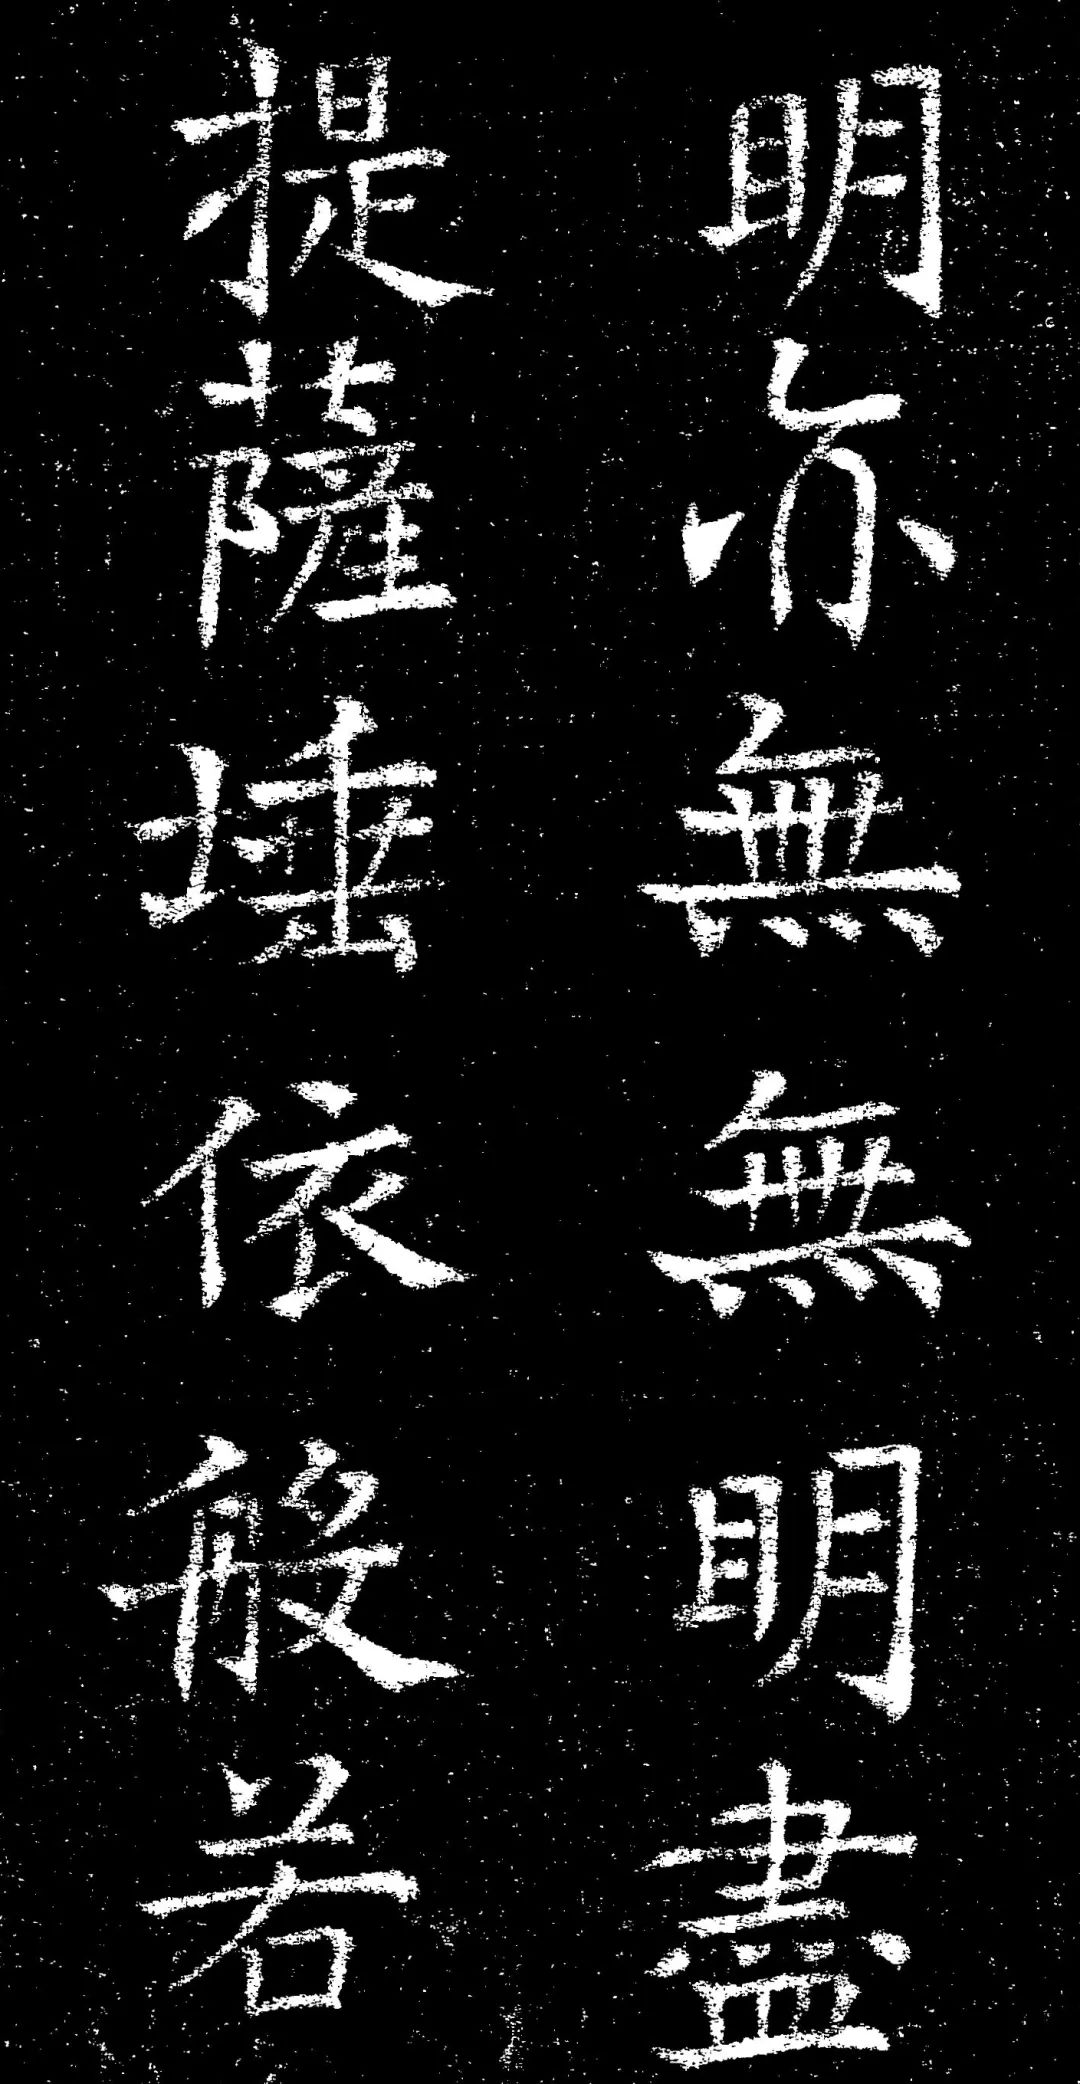 明亦無無明盡
提薩埵依般若